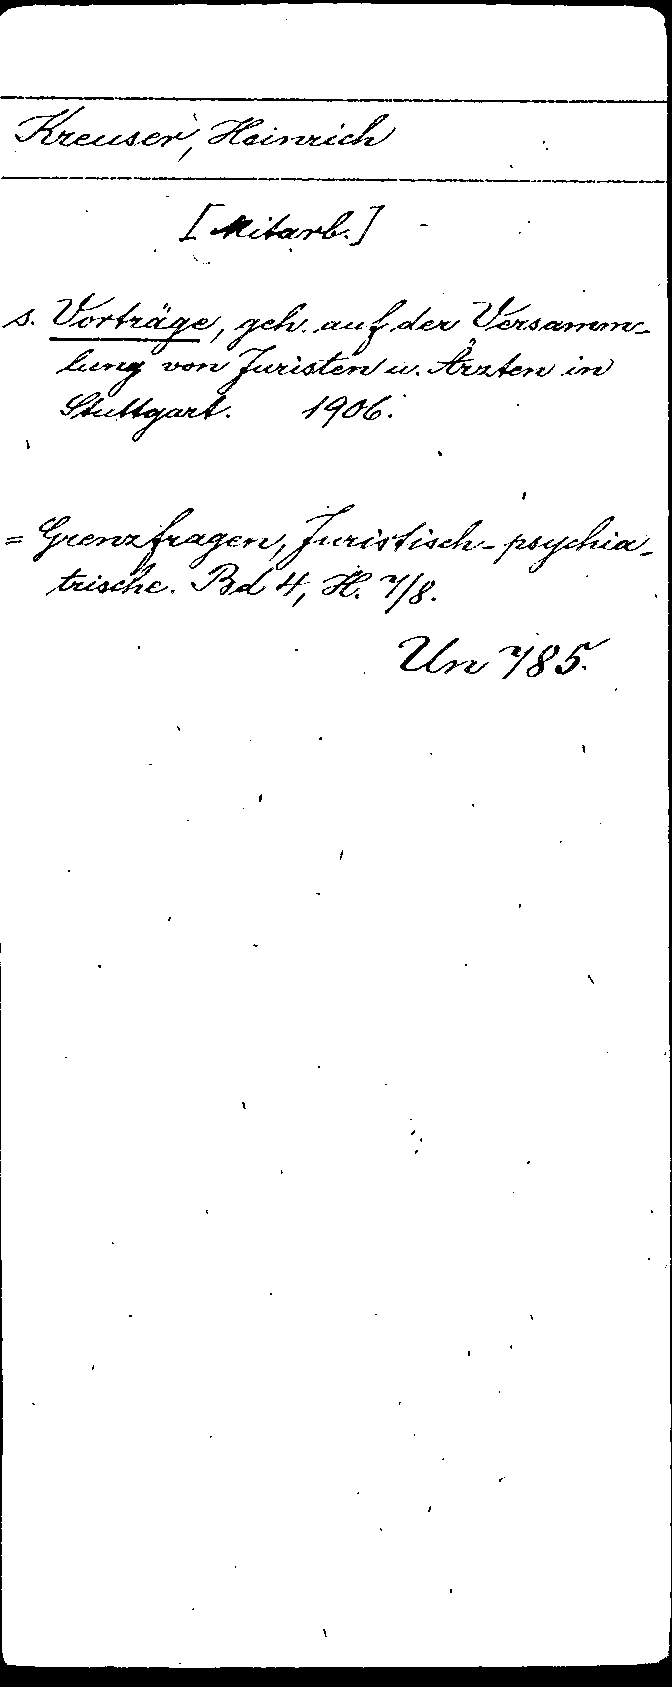 Kreuser, Heinrich
[Mitarb.]
s. Vorträge, geh. auf der Versamm-
lung von Juristen u. Ärzten in
Stuttgart. 1906.
= Grenzfragen, Juristisch-psychia-
trische. Bd 4, H. 7/8.
Un 785.